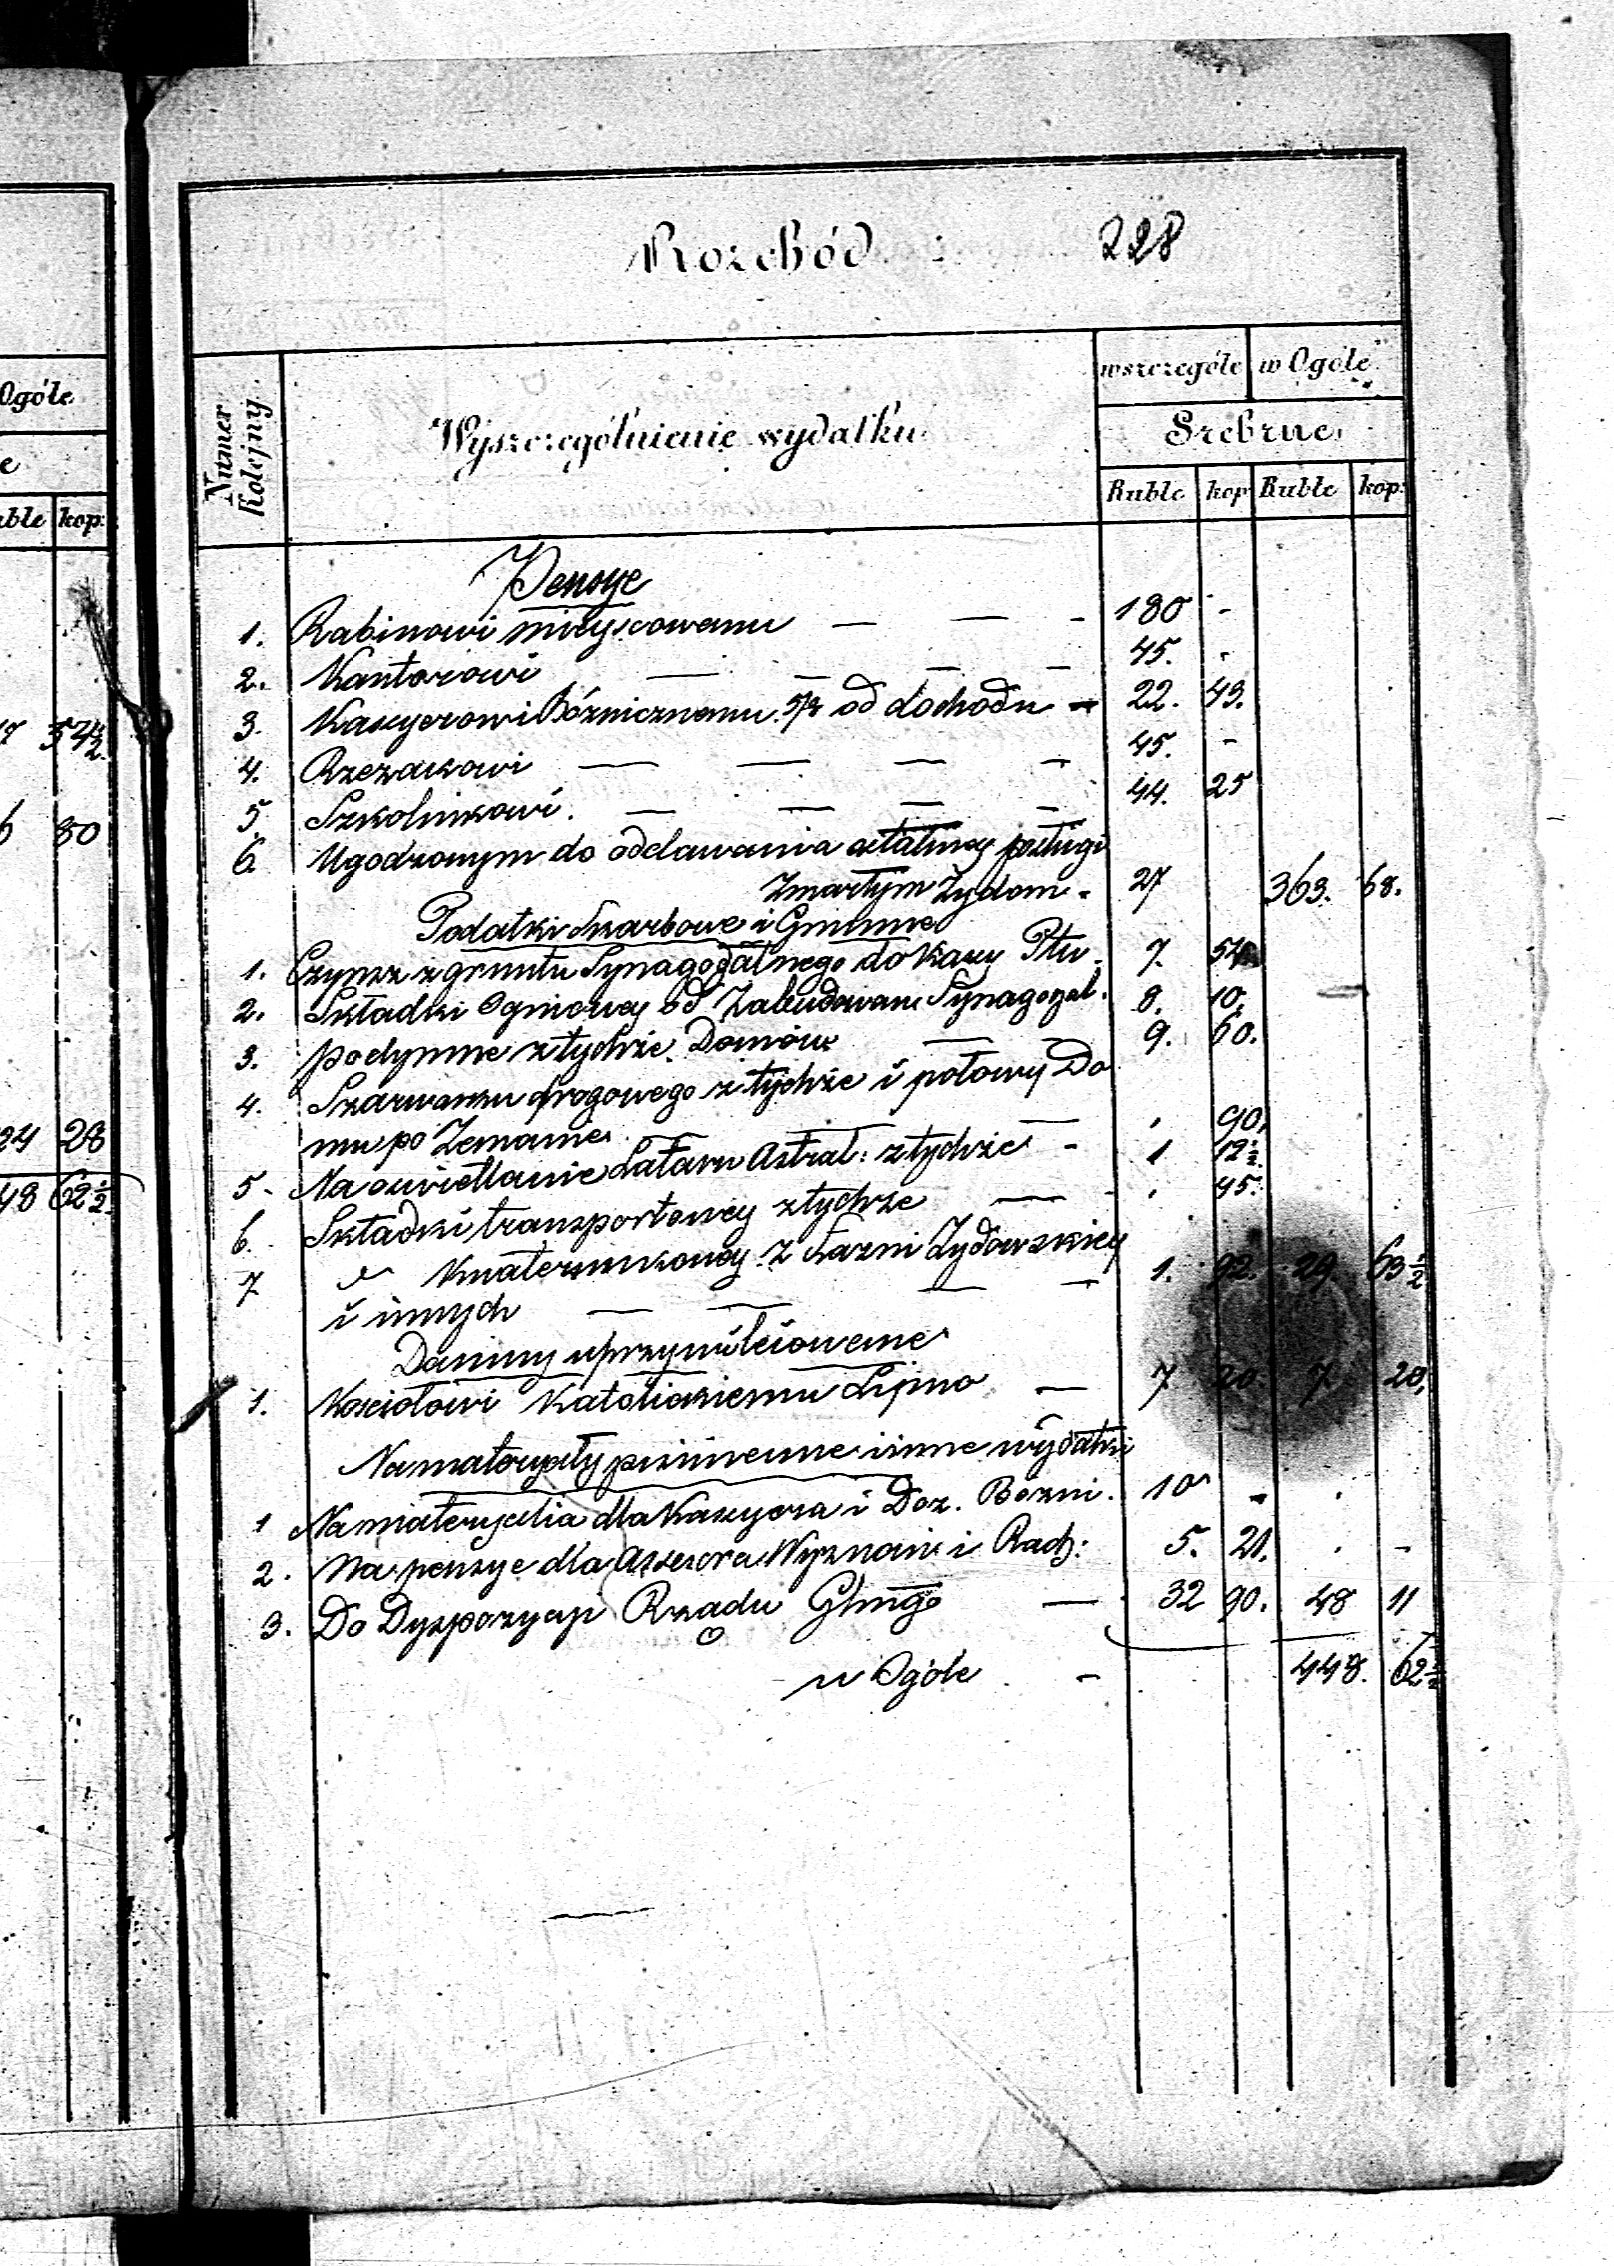 Ogóle
e
uble kop:
54½
80
24 28
48 62½
Rozchód 228
Numer Kolejny
Wyszczególnienie wydatku
wszczególe w Ogóle
Srebrne
Ruble kop Ruble kop:
Pensye
1. Rabinowi mieyscowemu — — - 180 -
2. Kantorowi — — — — 45. -
3. Kassyerowi Bóżnicznemu od dochodu — 22. 43.
4. Rzezakowi — — — — 45. -
5. Szkolnikowi. — — — — 44. 25
6. Ugodzonym do oddawania ostatniey posługi
Zmarłym Żydom - 27 363. 68.
Podatki Skarbowe i Gminne
1. Czynsz z gruntu Synagogalnego do Kassy 7. 54
2. Składki Ogniowey od Zabudowań Synagogal. 8. 10.
3. podymne z tychże Domów — - 9. 60.
4. Szarwarku drogowego z tychże i połowy Do
mu po — — . 90.
5. Na oświetlanie Latarń z tychże - 1 12½
6. Składki transportowey z tychże — - . 45.
7 " Kwaterunkowey z Łazni Żydowskiey
i innych — — — — 1. 92. 29 63½
Daniny uprzywileiowane
1. Kościołowi Katolickiemu Lipno — 7 20 7. 20.
Na materyały piśmienne i inne wydatki
1 Na materyalia dla Kassyera i Doz. Bożni. 10 - .
2. Na pensye dla Assesora Wyznań i Rach: 5. 21. . -
3. Do Dyspozycyi Rządu — 32 90. 48 11
w Ogóle - 448. 62½